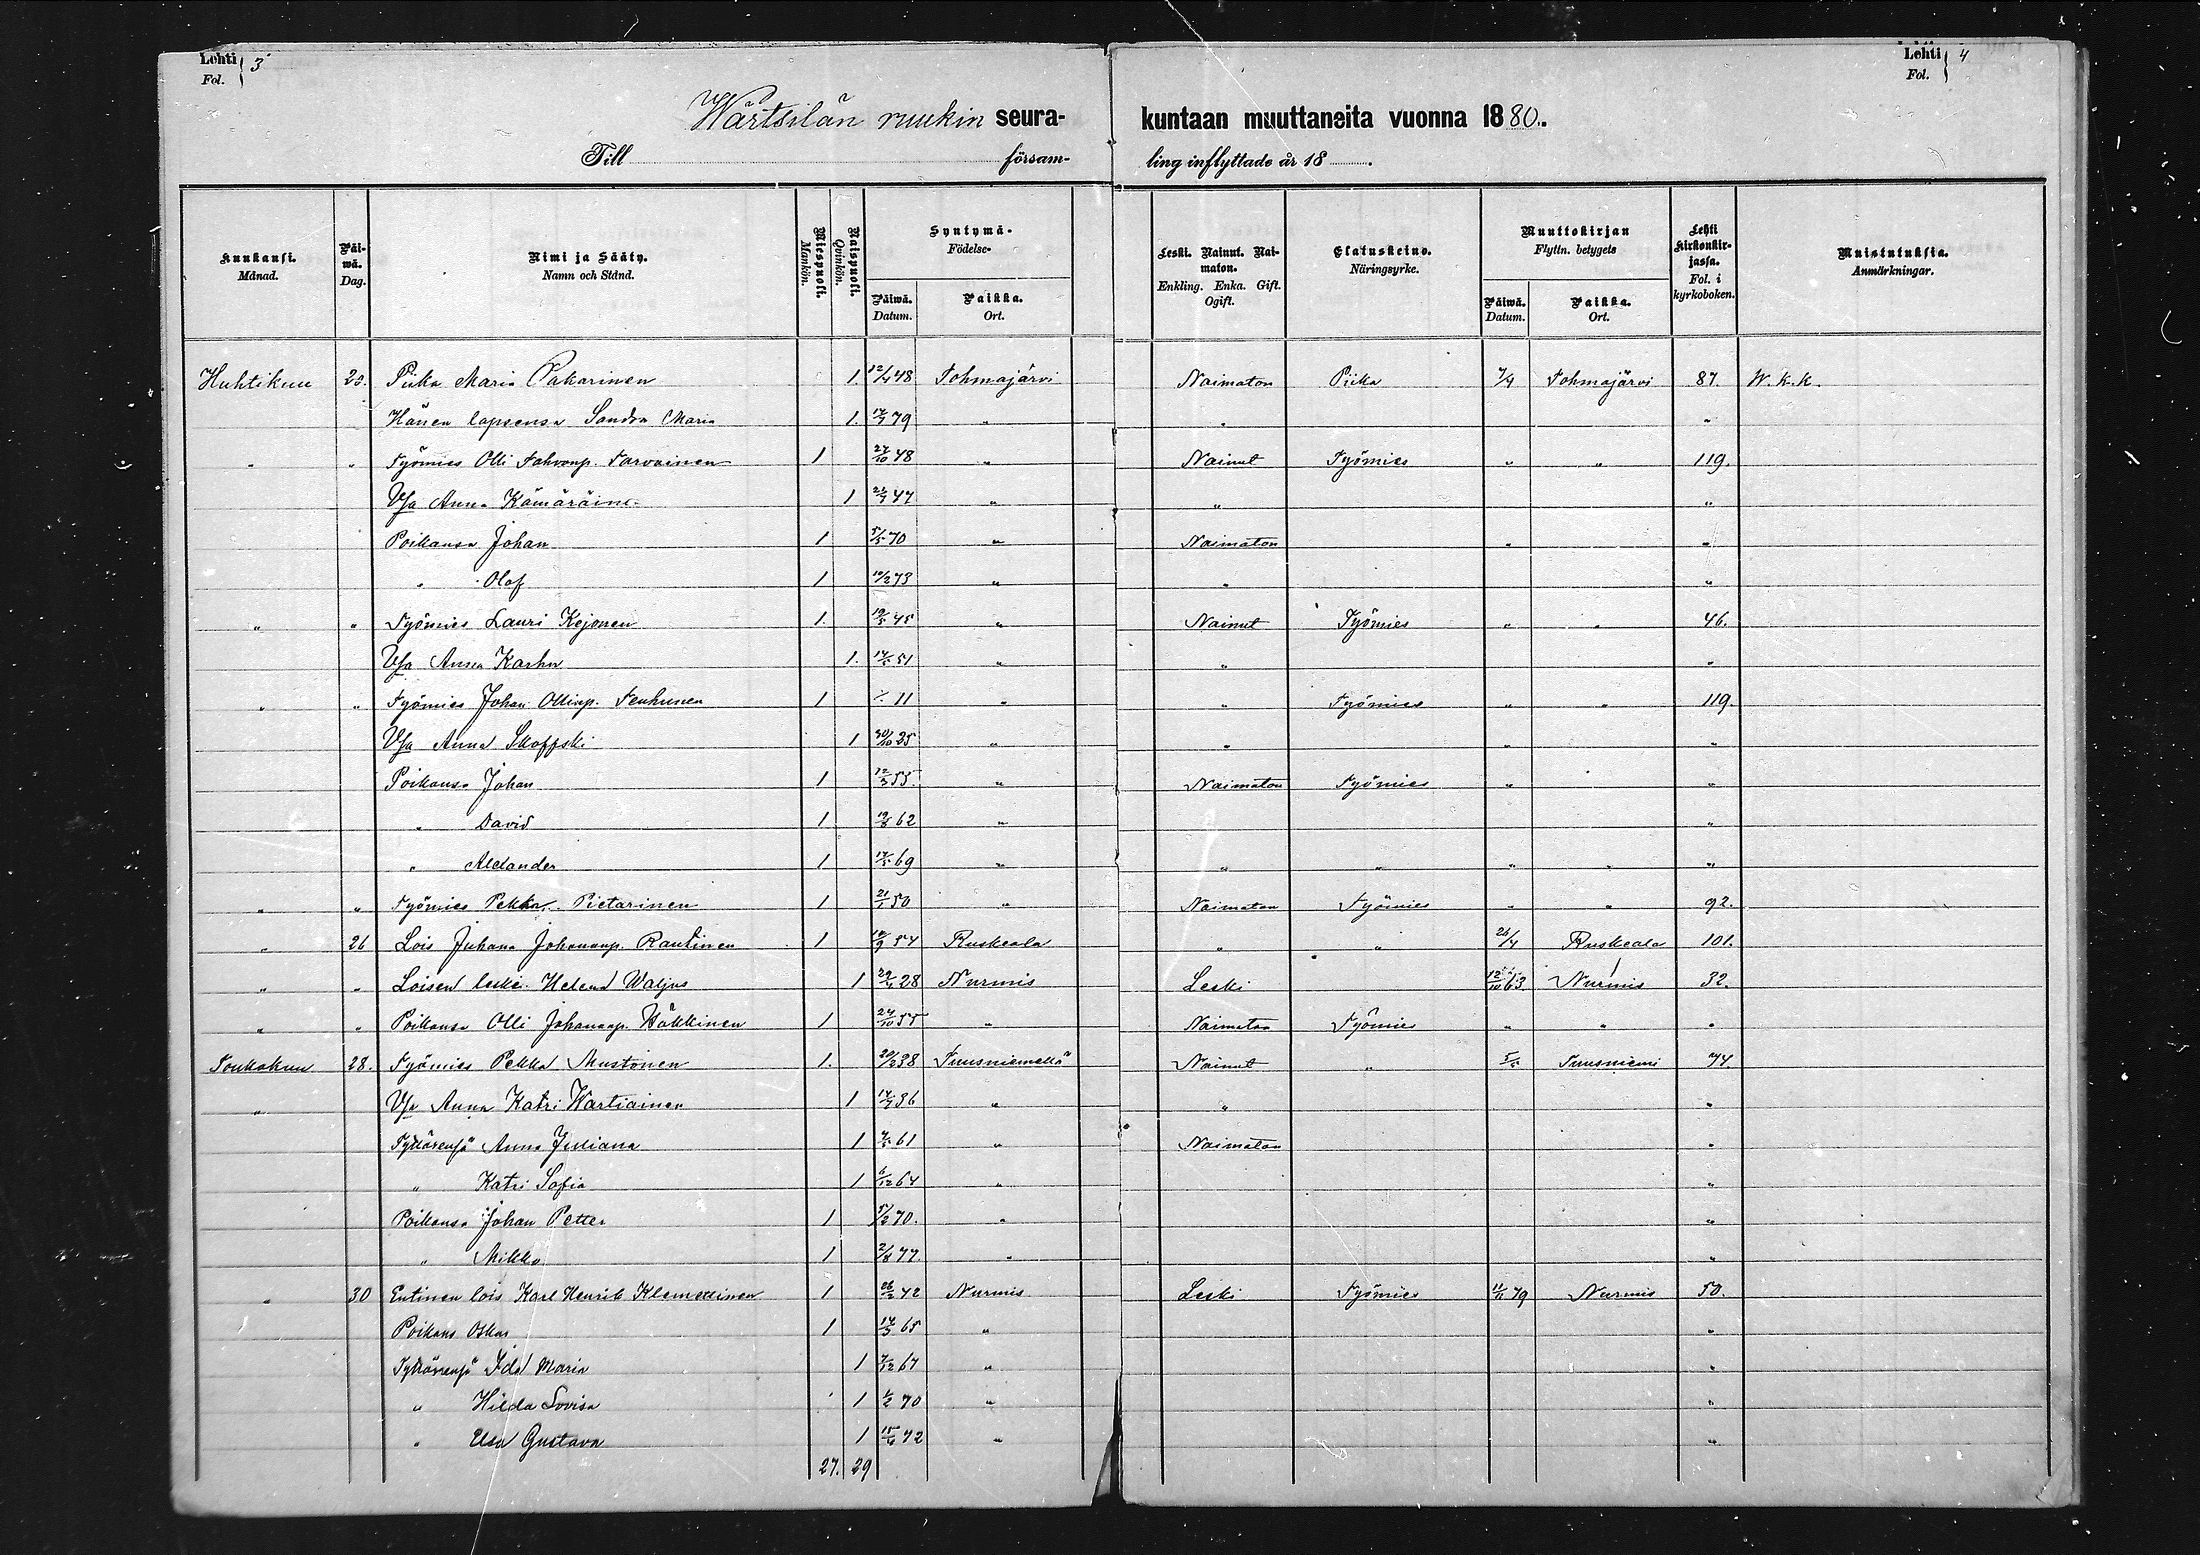 Lehti 3 Lehti 4
Fol. Fol.
Wärtsilän ruukin seura- kuntaan muuttaneita vuonna 1880.
Till församling inflyttade år 18
Kuukausi. Päiwä. Nimi ja Sääty. Miespuoli. Naispuoli. Syntymä- Leski. Nainut. Naimaton. Elatuskeino. Muuttokirjan Lehti kirkonkirjassa. Muistutuksia.
Månad. Dag. Namn och Stånd. Mankön. Quinkön. Födelse- Enkling. Enka. Gift. Ogift. Näringsyrke. Flyttn. betygets Fol. i kyrkoboken. Anmärkningar.
Päiwä. Paikka. Päiwä. Paikka.
Datum. Ort. Datum. Ort.
Huhtikuu 20. Piika Maria Pakarinen 1. 12/4 48 Tohmajärvi Naimaton Piika 7/4 Tohmajärvi 87. W. k. k.
Hänen lapsensa Sandra Maria 1. 79 " " "
" " Työmies Olli Tahvonp. Tarvainen 1 27/10 48 " Nainut Työmies " " 119.
Wsa Anna Kämäräine 1 47 " " "
Poikansa Johan 1 5/5 70 " Naimaton " "
" Olof 1 10/2 73 " " "
" " Työmies Lauri Kejonen 1. 45 " Nainut Työmies " " 46.
Wsa Anna Karhu 1. 51 " " "
" " Työmies Johan Ollinp. Tenhunen 1 11 " " Työmies " " 119.
Wsa Anna Skoffski 1 30/10 25 " " " "
Poikansa Johan 1 12/3 55. " Naimaton Työmies " "
" David 1 62 " "
" Aleksander 1 69 " " " " " "
" " Työmies Pekka Pietarinen 1 21/1 50 " Naimaton Työmies " " 92.
" 26 Lois Juhana Johananp. Rautinen 1 54 Ruskeala " " 26/4 Ruskeala 101.
" " Loisen leski Helena Waljus 1 28 Nurmis Leski 12/10 63 Nurmis 32.
" " Poikansa Olli Johananp. Häkkinen 1 24/10 55 " Naimaton Työmies " " "
Toukokuu 28. Työmies Pekka Mustonen 1. 20/2 38 Tuusniemellä Nainut " 5/5 Tuusniemi 74.
" Wsa Anna Katri Wartiainen 1 36 " " "
Tyttärensä Anna Juliana 1 61 " Naimaton "
" Katri Sofia 1 6/12 64 " "
Poikansa Johan Petter 1 5/2 70. " "
" Mikko 1 2/8 77. " "
" 30 Entinen lois Karl Henrik Klemettinen 1 26/2 42 Nurmis Leski Työmies 79 Nurmis 50.
Poikans Oskar 1 65 " "
Tyttärensä Ida Maria 1 7/12 67 " "
" Hilda Lovisa 1 1/2 70 " "
" Elsa Gustava 1 72 " "
27. 29